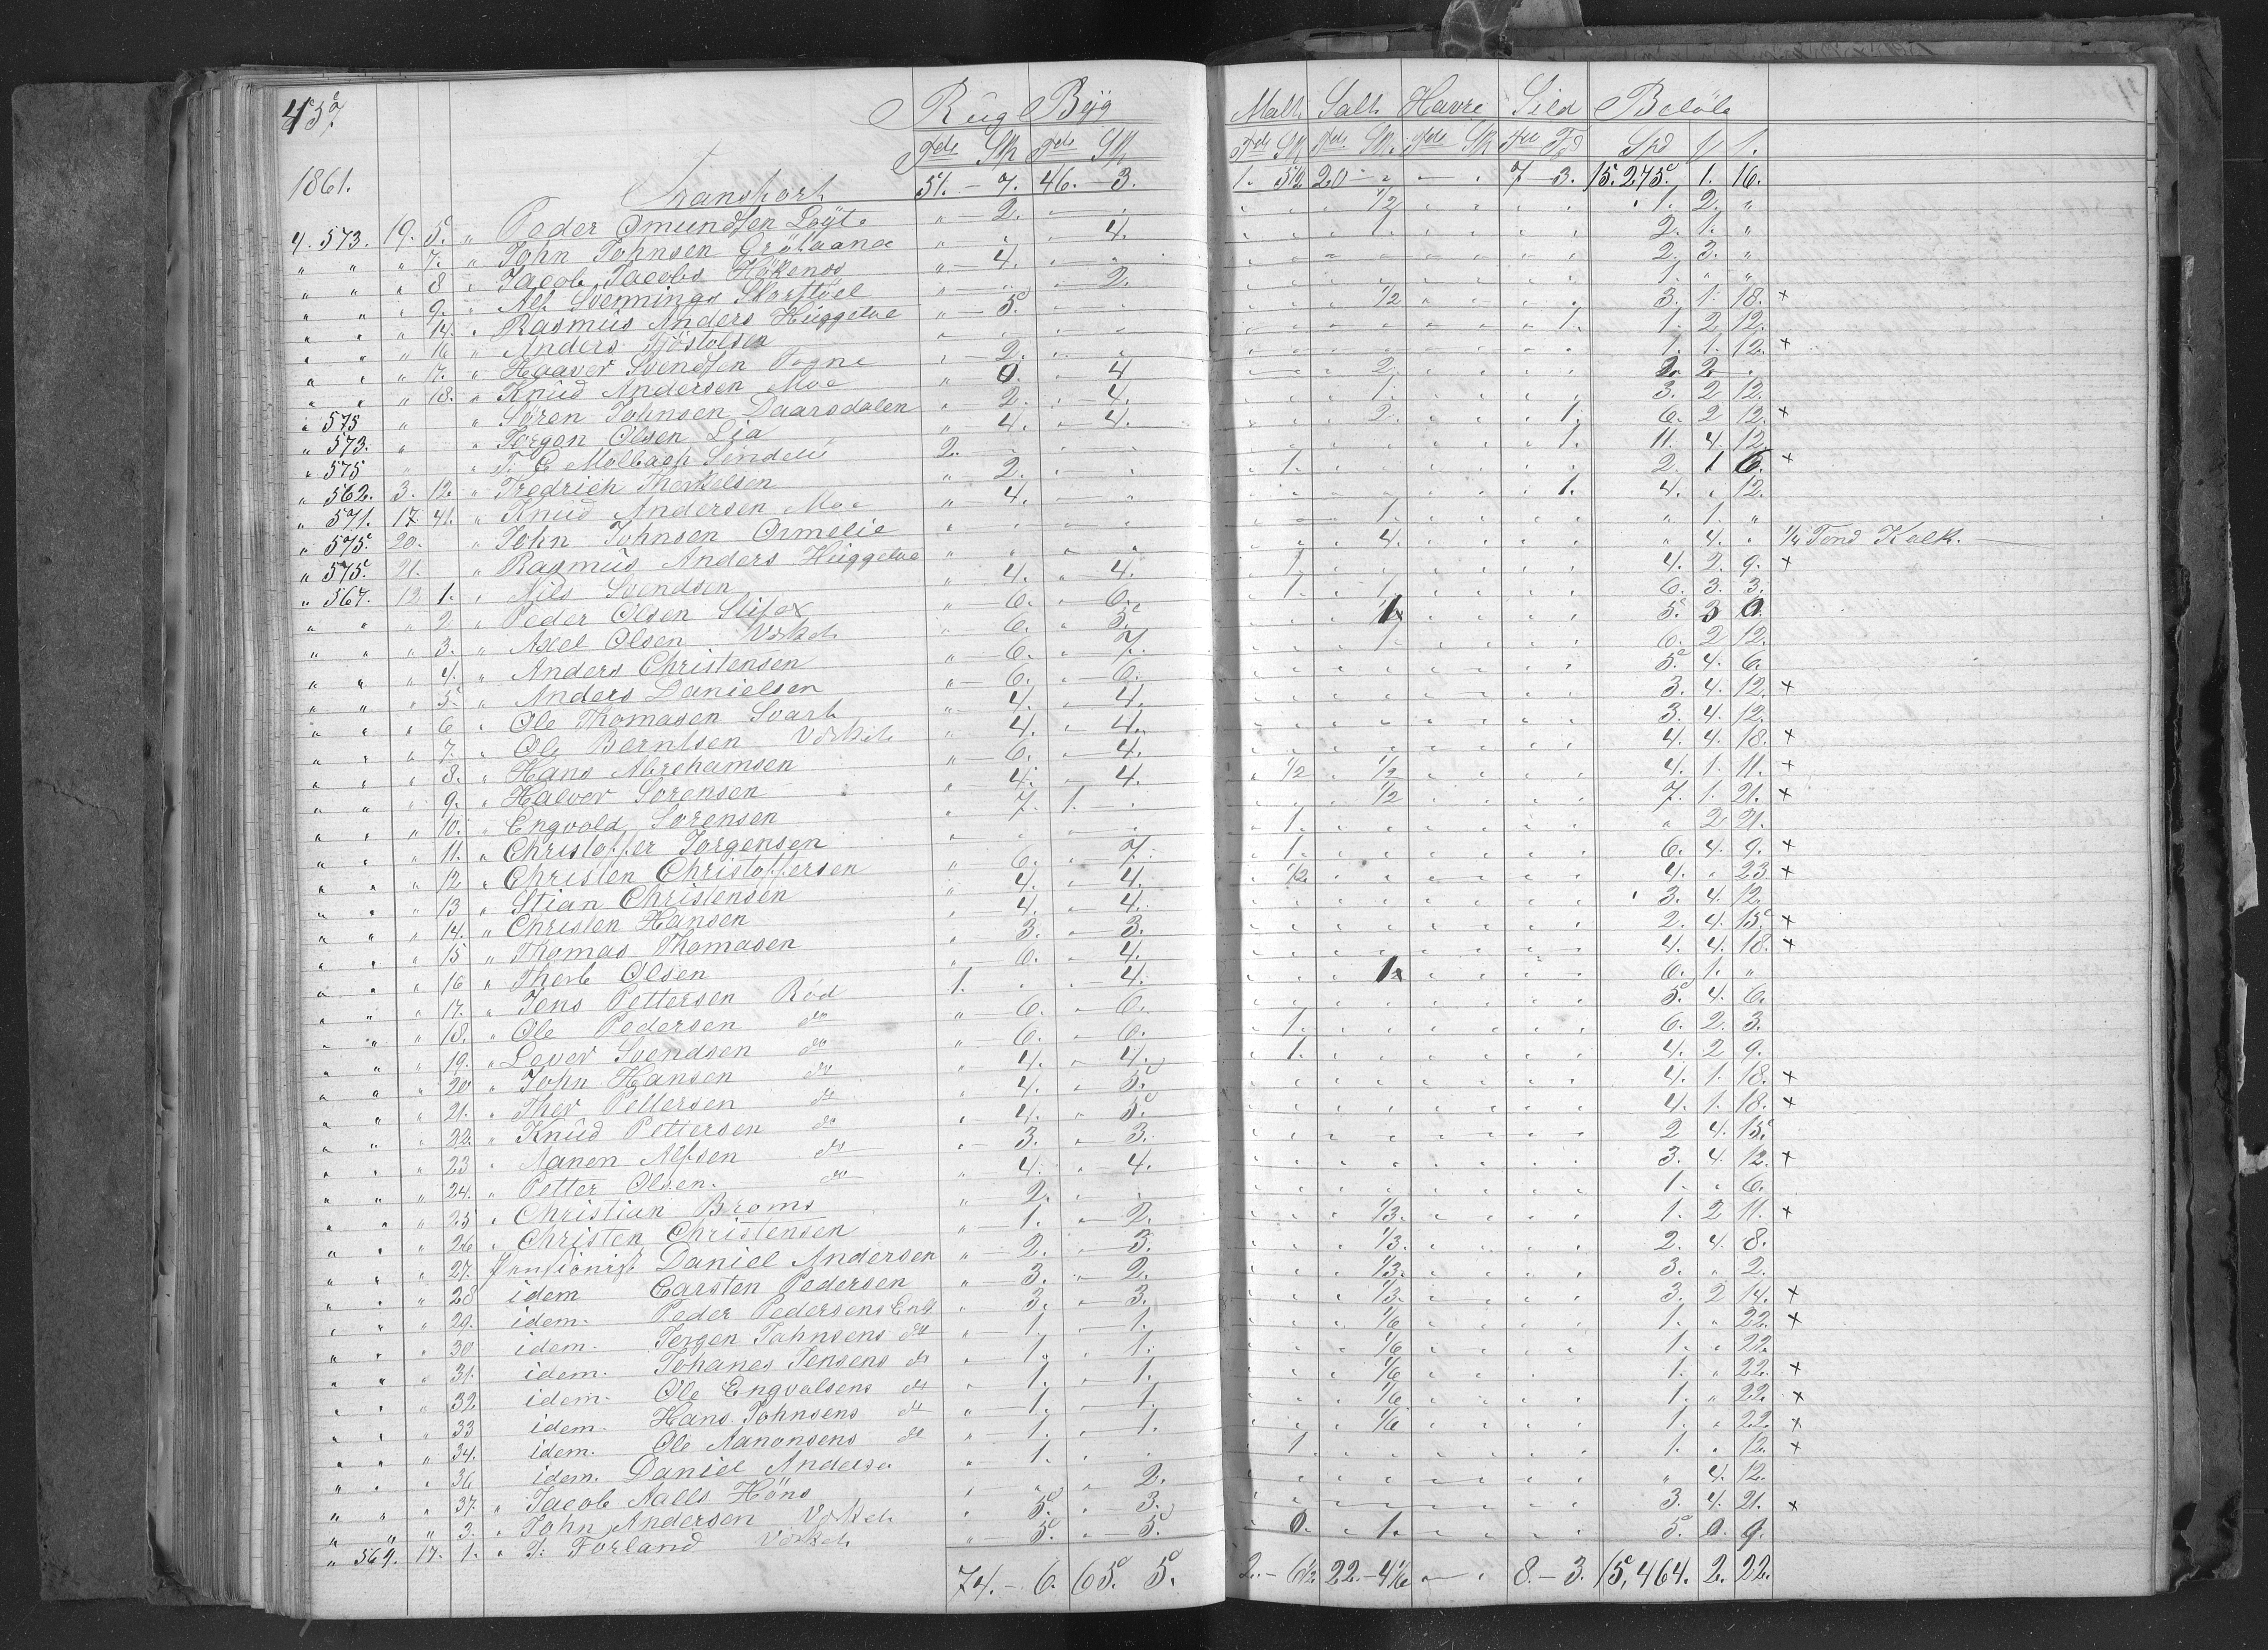 457. Rüg Byg Malt Salt Havre Sild Beløb
Tdr Sk Tdr Sk Tdr Sk Tdr Sk Tdr Sk Spd
1861. Transport 51. - 7. 46. - 3. 1. 5½ 20 - " - " 7 - 3. 15.275. 1. 16.
4. 573. 19. 5. " Peder Omundsen " - 2. ½ 1. 2. "
" " " 7. " John Johnsen " " 4. 1. 2. 1. "
" " " 8 " Jacob Jacobs " - 4. 2. 3. "
" " " 9. " Alf Svennings " 2. 1. " "
" " " 14. " Rasmüs Anders Hüggelve " - 5. ½ 3. 1. 18. x
" " " 16 " Anders Tjöstolsen 1. 1. 2 12.
" " " 17. " Haaver Svendsen Togne 2. 1. 1. 12. x
" " " 18. " Knüd Andersen Moe " 0. " 4 2. 2. 2 "
" 575 " " Sören Johnsen Daarsdalen " 2. " 4. 1. 3. 2 12.
" 573. " " Jörgon Olsen Lia " 4. " 4. 2. 1. 6. 2 12. x
" 575 " " T. C. Molbach 2. 1. 11. 4. 12.
" 562. 3. 12 " Fredrich Therkelsen 2. 1. 2. 1 6. x
" 571. 17 41. " Knüd Andersen Moe " 4. 1. 4. " 12.
" 575. 20. " John Johnsen Ormelie 1. " 1. "
" 575. 21. " Rasmüs Anders Hüggelve 4. " 4. " ¼ Tond Kalk.
" 567. 12 1. " Nils Svendsen " 4. " 4. 1. 4. 2. 9. x
" " " 2 " Peder Olsen " 6. " 6. 1. 1. 6. 3. 3.
" " " 3. " Axel Olsen " 6. " 5. 5. 3 0.
" " " 4. " Anders Christensen " 6. " 7. 1. 6. 2 12.
" " " 5. " Anders Danielsen " 6. " 6. 5. 4. 6.
" " " 6 " Ole Thomasen Svart " 4. " 4. 3. 4. 12. x
" " " 7. " Ole Berntsen " 4. " 4. 3. 4. 12.
" " " 8. " Hans Abrehamsen " 6. " 4. 4. 4. 18. x
" " " 9. " Halver Sorensen " 4. " 4. ½ ½ 4. 1. 11. x
" " " 10. " Engvold Sorensen " 7. 1. " ½ 7. 1. 21. x
" " " 11. " Christoffer Jorgensen 1. " 2 21.
" " " 12 " Christen Christoffersen " 6. " 7. 1. 6. 4. 9. x
" " " 13 " Stian Christensen " 4. " 4. ½ 4. " 23 x
" " " 14. " Christen Hansen " 4. " 4. 3. 4. 12.
" " " 15 " Thomas Thomasen " 3. " 3. 2. 4. 15. x
" " " 16 " Therb Olsen " 6. " 4. 4. 4. 18. x
" " " 17. " Jens Pettersen Röd 1. " " 4. 6. 1. "
" " " 18. " Ole Pedersen do " 6. " 6. 5. 4. 6.
" " " 19. " Lever Svendsen do " 6. " 6. 1. 6. 2. 3.
" " " 20 " John Hansen do " 4. " 4. 1. 4. 2 9.
" " " 21. " Ther Pettersen do " 4. " 5. 4. 1. 18. x
" " " 22. " Knüd Pettersen do " 4. " 5. 4. 1. 18. x
" " " 23 " Aanen Alfsen do " 3. " 3. 2 4. 15.
" " " 24. " Petter Olsen. do " 4. " 4. 3. 4. 12. x
" " " 25 " Christian Broms " 2. " " 1. " 6.
" " " 26 " Christen Christensen " 1. " 2. ⅓. 1. 2 11. x
" " " 27. Pensionist Daniel Andersen " 2. " 3. ⅓. 2. 4. 8.
" " " 28 idem Carsten Pedersen " 3. " 2. ⅓. 3. " 2.
" " " 29. idem. Peder Pedersens Enk " 3. " 3. ⅓. 3. 2 14. x
" " " 30 idem. Jorgen Johnsens do " 1. " 1. ⅙ 1. " 22. x
" " " 31. idem. Johanes Jensens do " 1. " 1. ⅙ 1. " 22.
" " " 32 idem. Ole Engvalsens do " 1. " 1. ⅙ 1. " 22. x
" " " 33 idem. Hans Johnsens do " 1. " 1. ⅙ 1. " 22. x
" " " 34. idem. Ole Aanonsens do " 1. " 1. ⅙ 1. " 22. x
" " " 36 idem. Daniel Anderse " 1. " " 1. 1. " 12. x
" " " 37. " Jacob Aalls Höns " " " 2. " 4. 12.
" " " 3. " John Andersen " 5. " 3. 3. 4. 21. x
" 569. 17. 1. " T: Forland " 5. " 5. 0. 1. 5. 0. 9.
74. - 6. 65. 5. 2. - 6½ 22. - 4⅙ - " 8. - 3. 15,464. 2. 22.